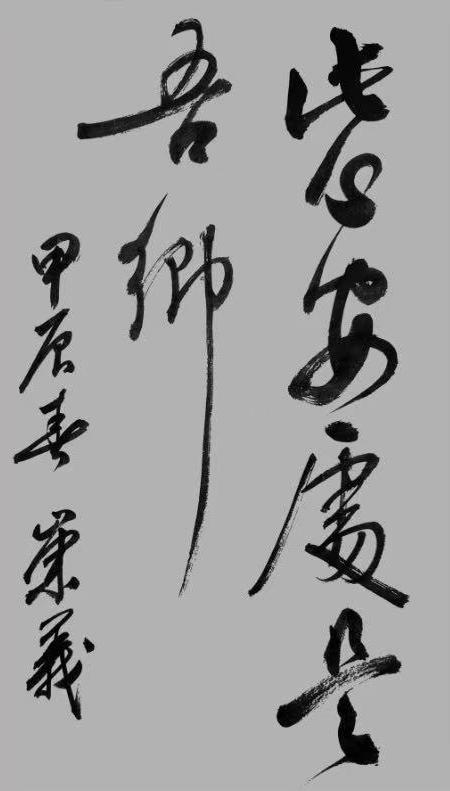 此心安處是
吾鄉
甲辰春 榮義